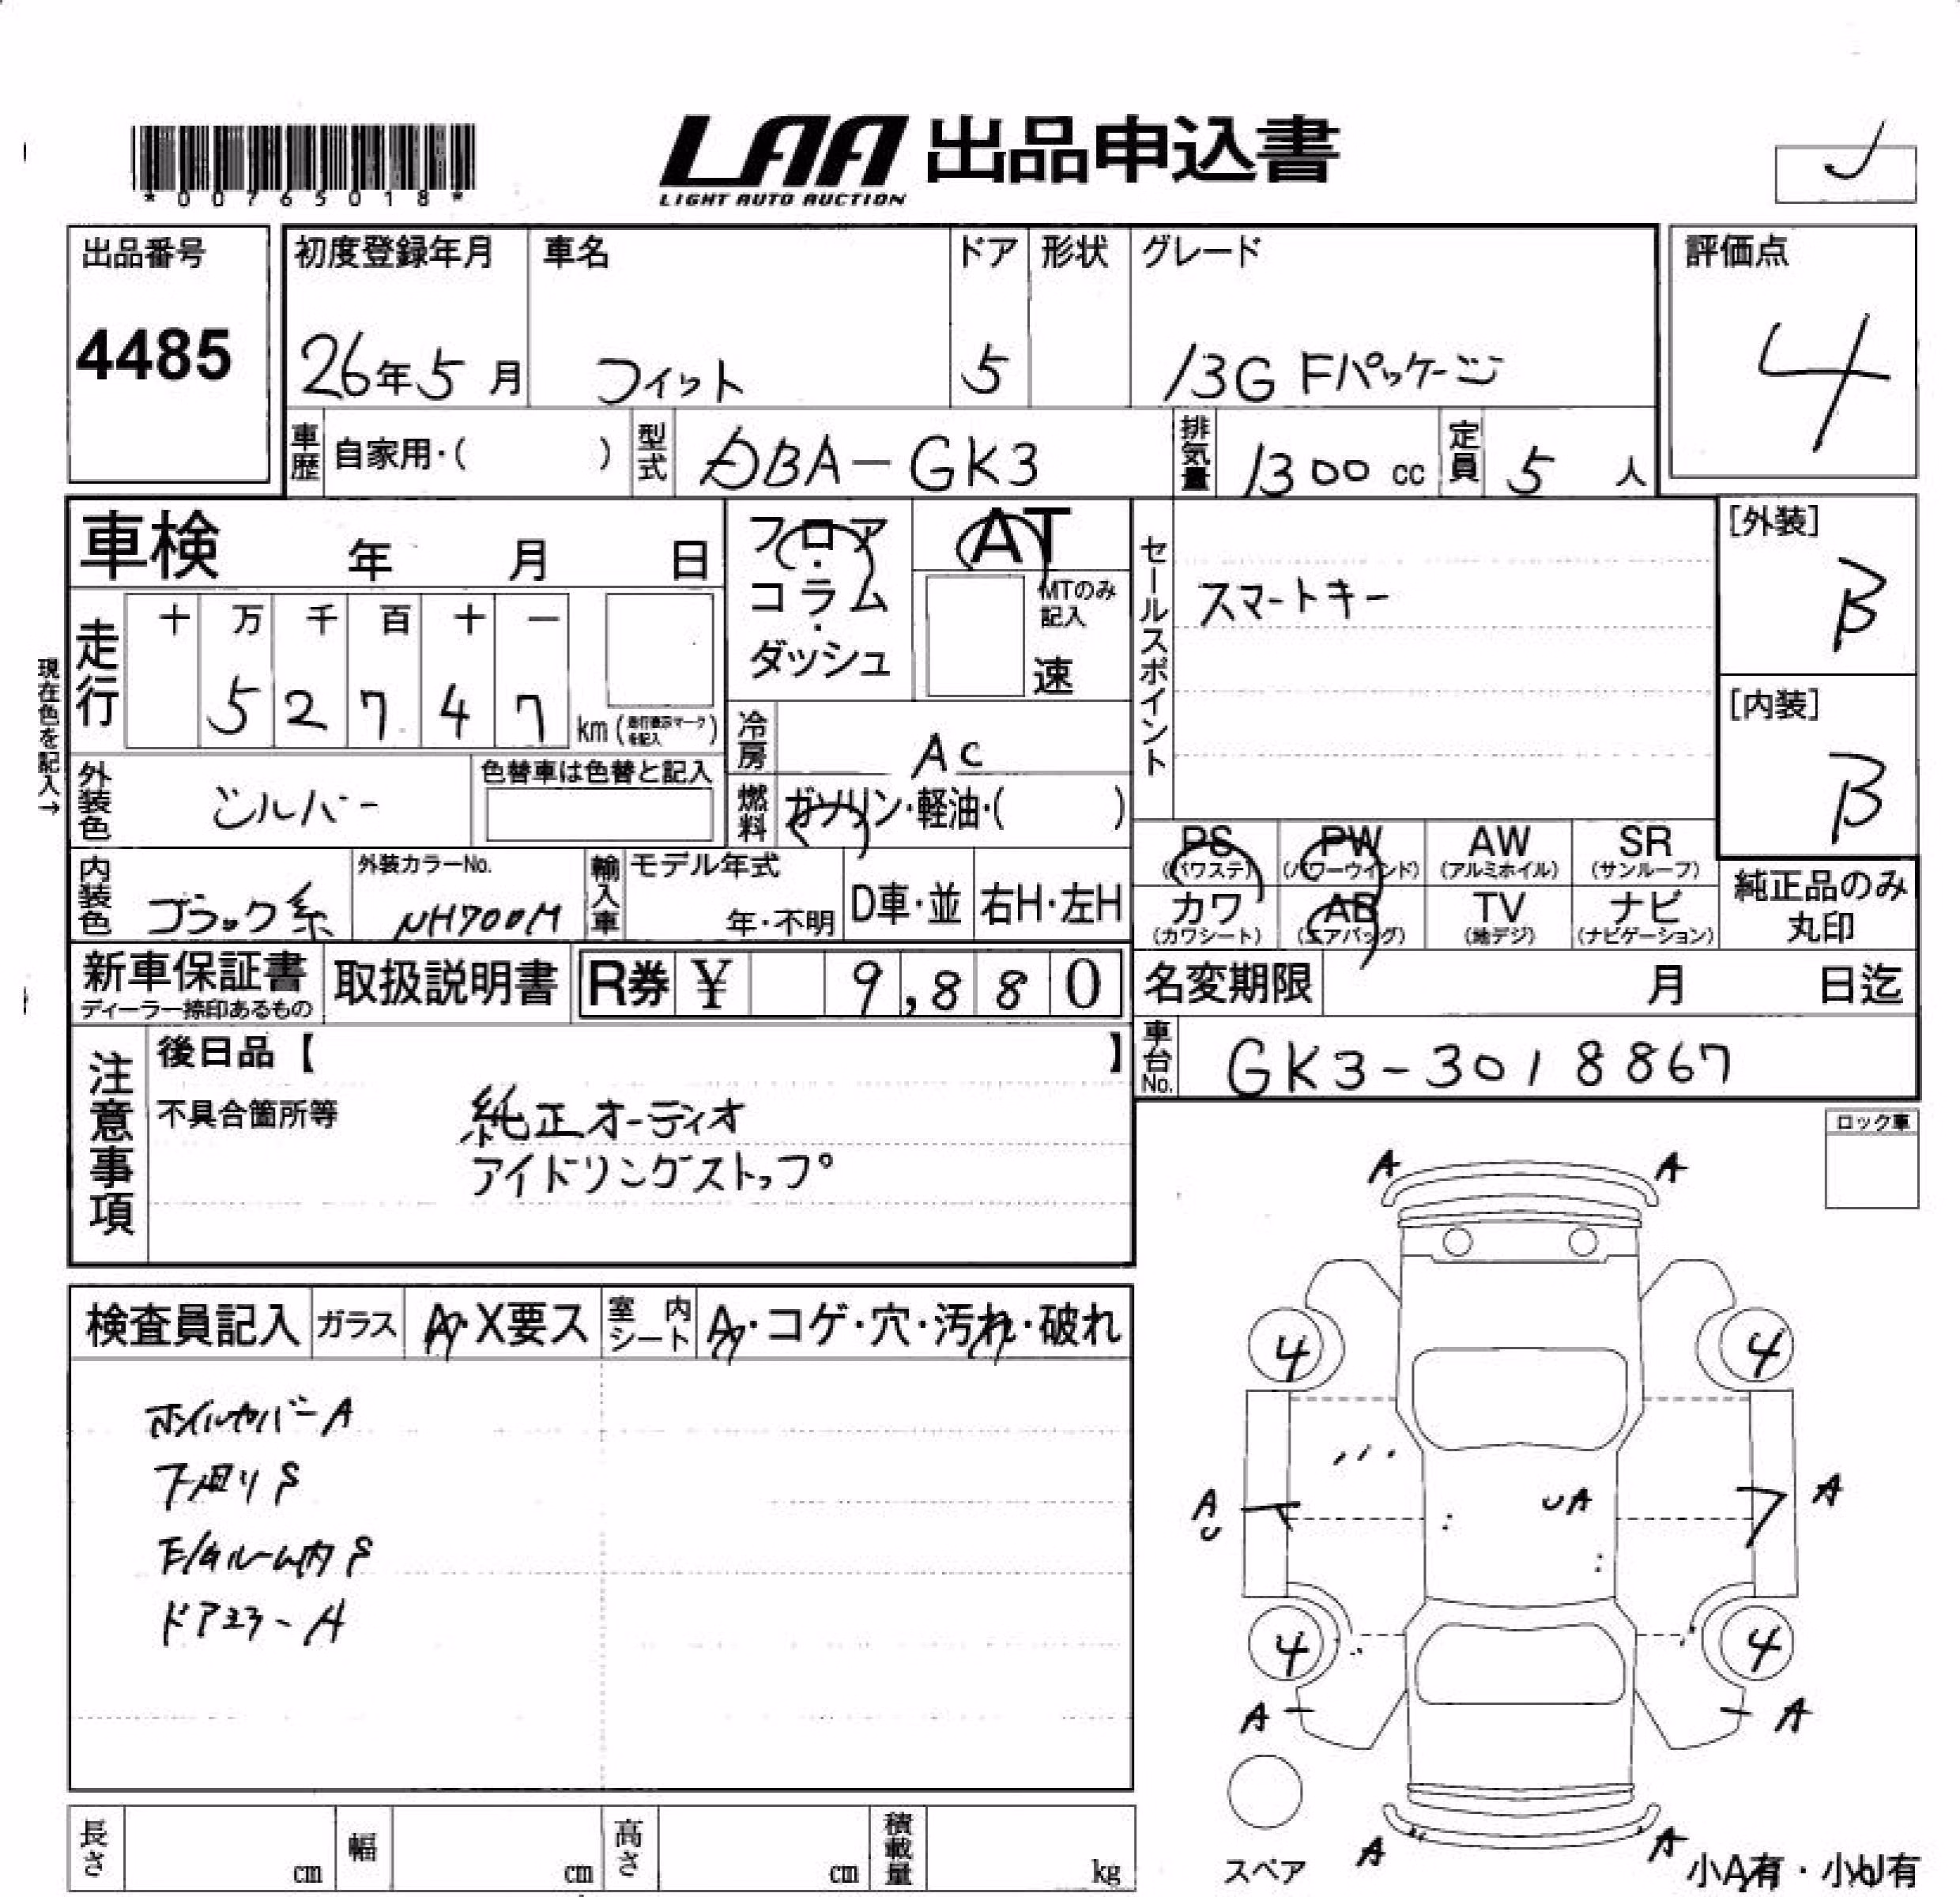 LAA 出品申込書
LIGHT AUTO AUCTION
*00765018*
出品番号
4485
初度登録年月
26年5月
車名
フィット
ドア
5
形状
グレード
13G Fパッケージ
評価点
4
車歴 自家用・( )
型式 DBA-GK3
排気量 1300 cc
定員 5 人
車検 年 月 日
フロア・コラム・ダッシュ
AT
MTのみ記入
速
セールスポイント
スマートキー
[外装]
B
[内装]
B
現在色を記入→
走行 十 万 千 百 十 一
5 2 7 4 7 km (走行表示マークを記入)
冷房 AC
外装色 シルバー
色替車は色替と記入
燃料 ガソリン・軽油・( )
内装色 ブラック系
外装カラーNo.
NH700M
輸入車 モデル年式
年・不明
D車・並 右H・左H
PS (パワステ) PW (パワーウインド) AW (アルミホイル) SR (サンルーフ)
カワ (カワシート) AB (エアバッグ) TV (地デジ) ナビ (ナビゲーション)
純正品のみ丸印
新車保証書
ディーラー捺印あるもの
取扱説明書
R券 ¥ 9,880
名変期限 月 日迄
車台No. GK3-3018867
注意事項
後日品【 】
不具合箇所等
純正オーディオ
アイドリングストップ
ロック車
検査員記入 ガラス A・X要ス 室内シート A・コゲ・穴・汚れ・破れ
ホイルカバーA
下廻りS
E/Gルーム内S
ドアミラーA
A A
4 4
A U UA A
4 4
A A
A A
スペア
小A有・小U有
長さ cm 幅 cm 高さ cm 積載量 kg